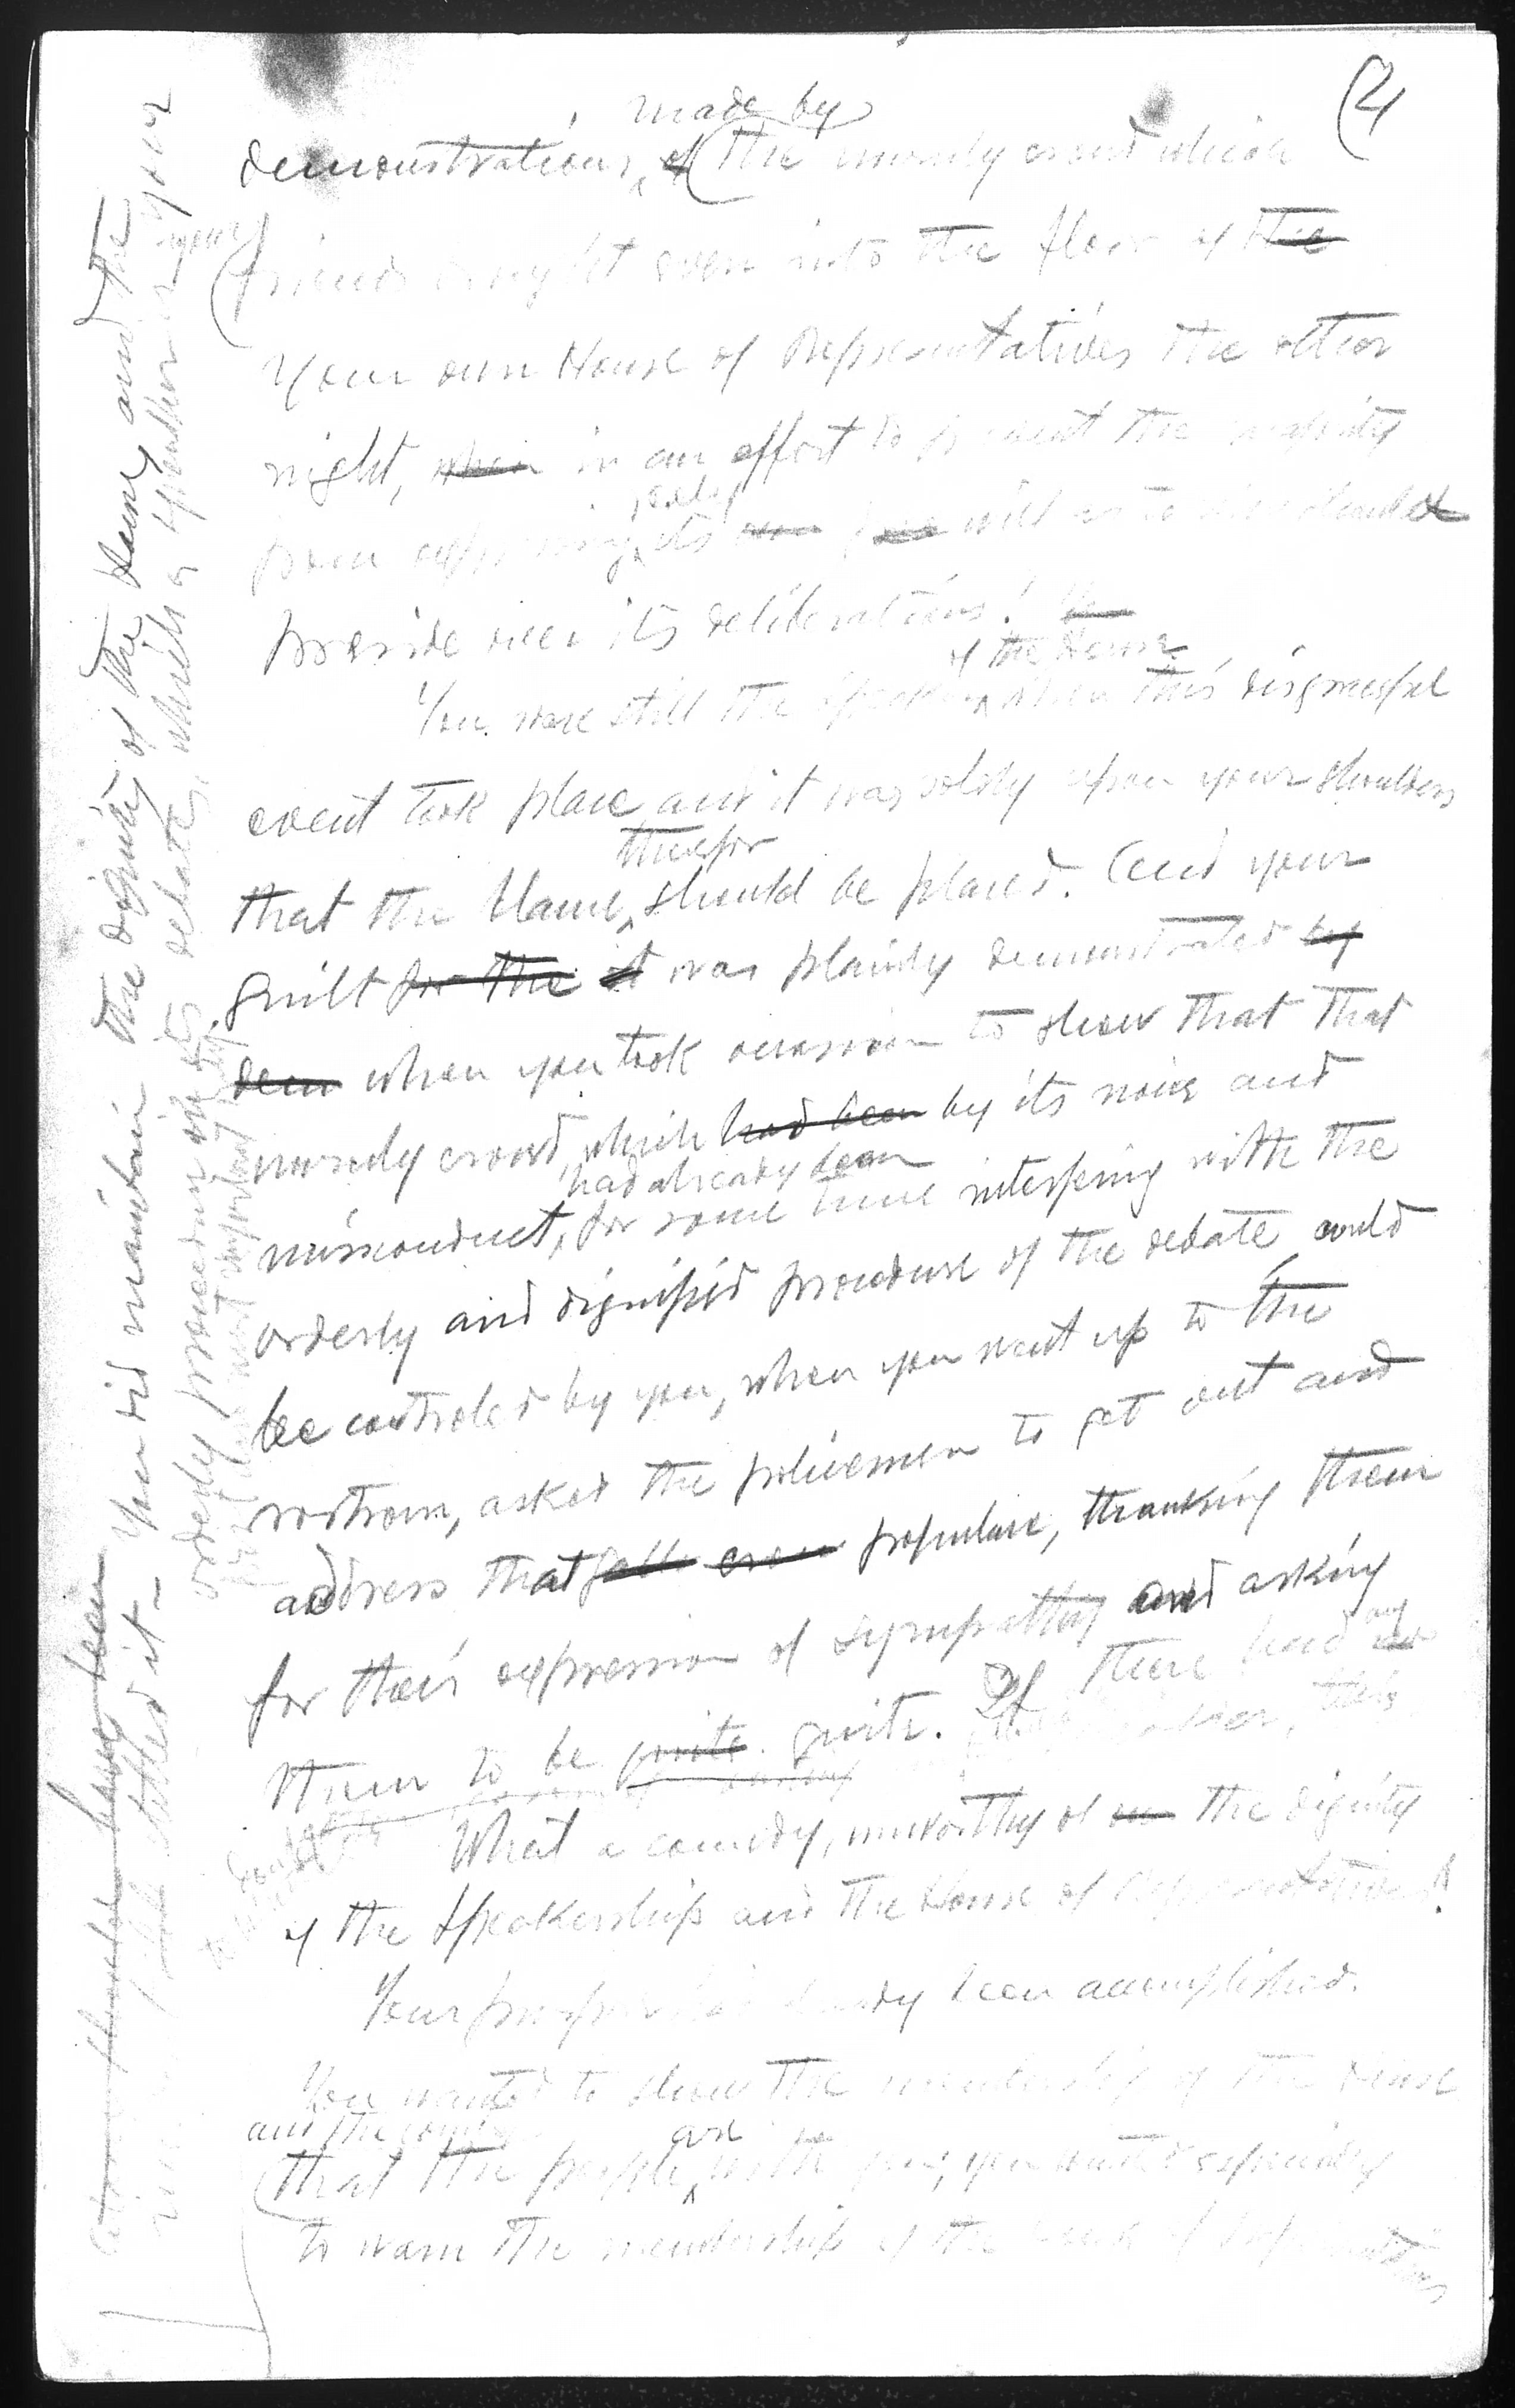 (2
made by
demonstrations, of (the unruly crowd which
your
friends might even into the floor of the
Your own House of Representatives the other
night, when in an effort to prevent the majority
from expressing its own free will as to who should
preside over its deliberations!
of the House
You were still the Speaker when this disgraceful
event took place and it was solely upon your shoulders
therefor
that the blame should be placed. And your
guilt for the it was plainly demonstrated by
dem when you took occasion to show that that
unruly crowd, which had been by its noise and
had already been
misconduct, for some time interfering with the
orderly and dignified procedure of the debate, could
be controled by you, when you went up to the
rostrom, asked the policemen to get out and
address that populace, thanking them
for their expression of sympathy and asking
any
them to be quite. quite. If there had
What a comedy, unworthy of the dignity
of the Speakership and the House of Representatives!
Your purpose had already been accomplished.
You wanted to show the membership of the House
and the
are
(that the people, with you, you wanted
to warn the membership of the House of Representatives
should have been
You did maintain the dignity of the House and the
orderly procedure in its debates, which a Speaker in your